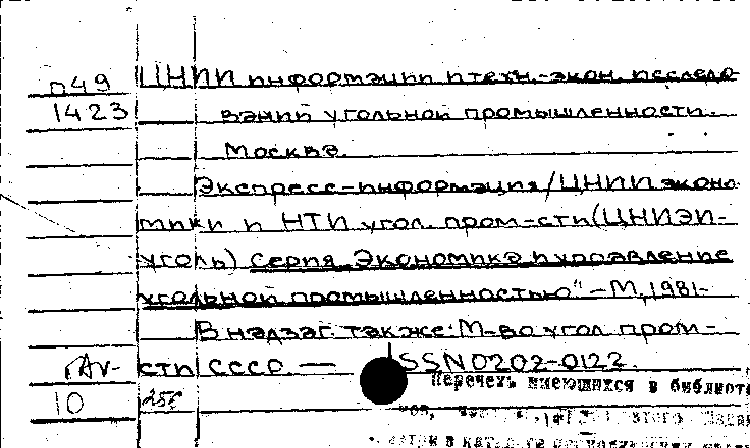 п49 ЦНИИ информации и техн.-экон. исследо-
1423 ваний угольной промышленности.
Москва.
Экспресс-информация/ЦНИИ эконо-
мики и НТИ угол. пром-сти(ЦНИЭИ-
уголь) Серия "Экономика и управление
угольной промышленностью" - М, 1981-
В надзаг. также: М-во угол. пром-
сти СССР. — ISSN 0202-0122.
10
Перечень имеющихся в библиоте